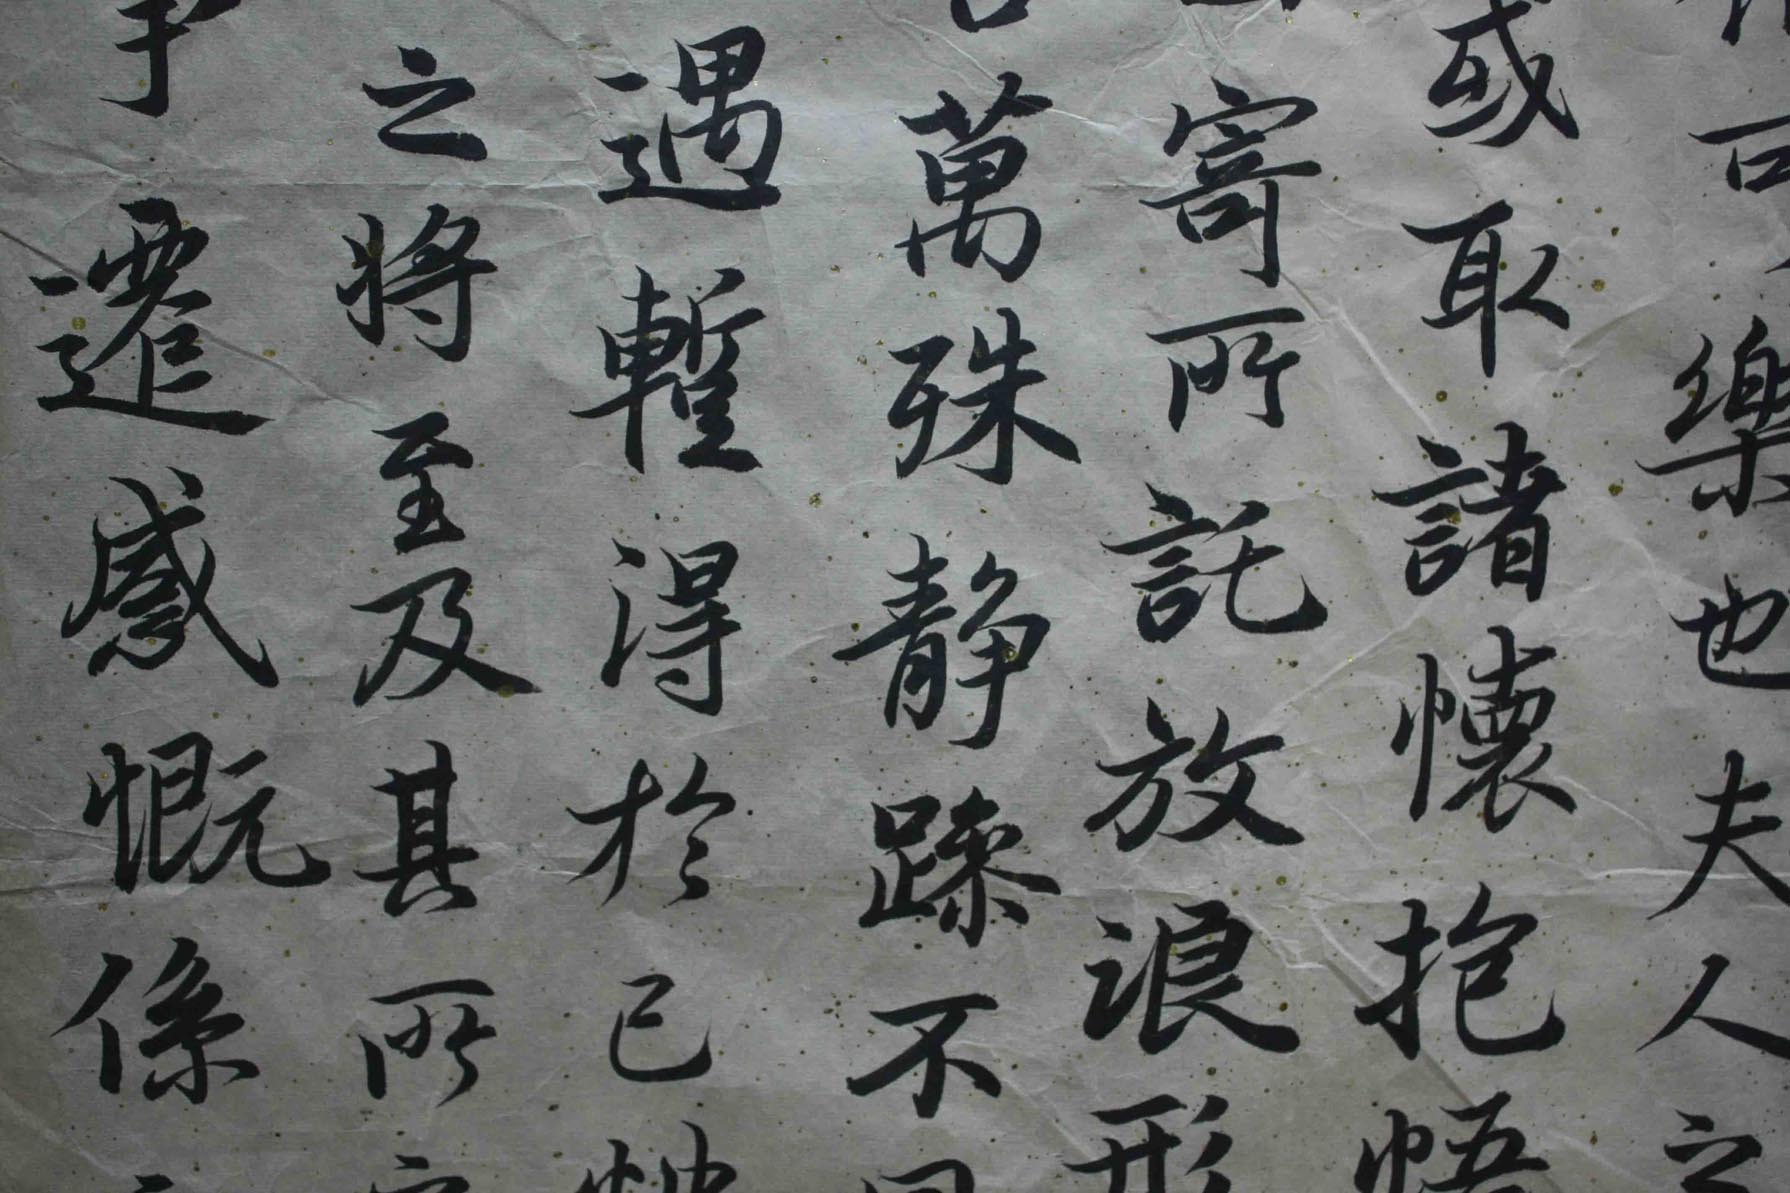 可樂也夫人之
或取諸懷抱悟
寄所託放浪形
萬殊靜躁不同
遇暫得於己快
之將至及其所
遷感慨係